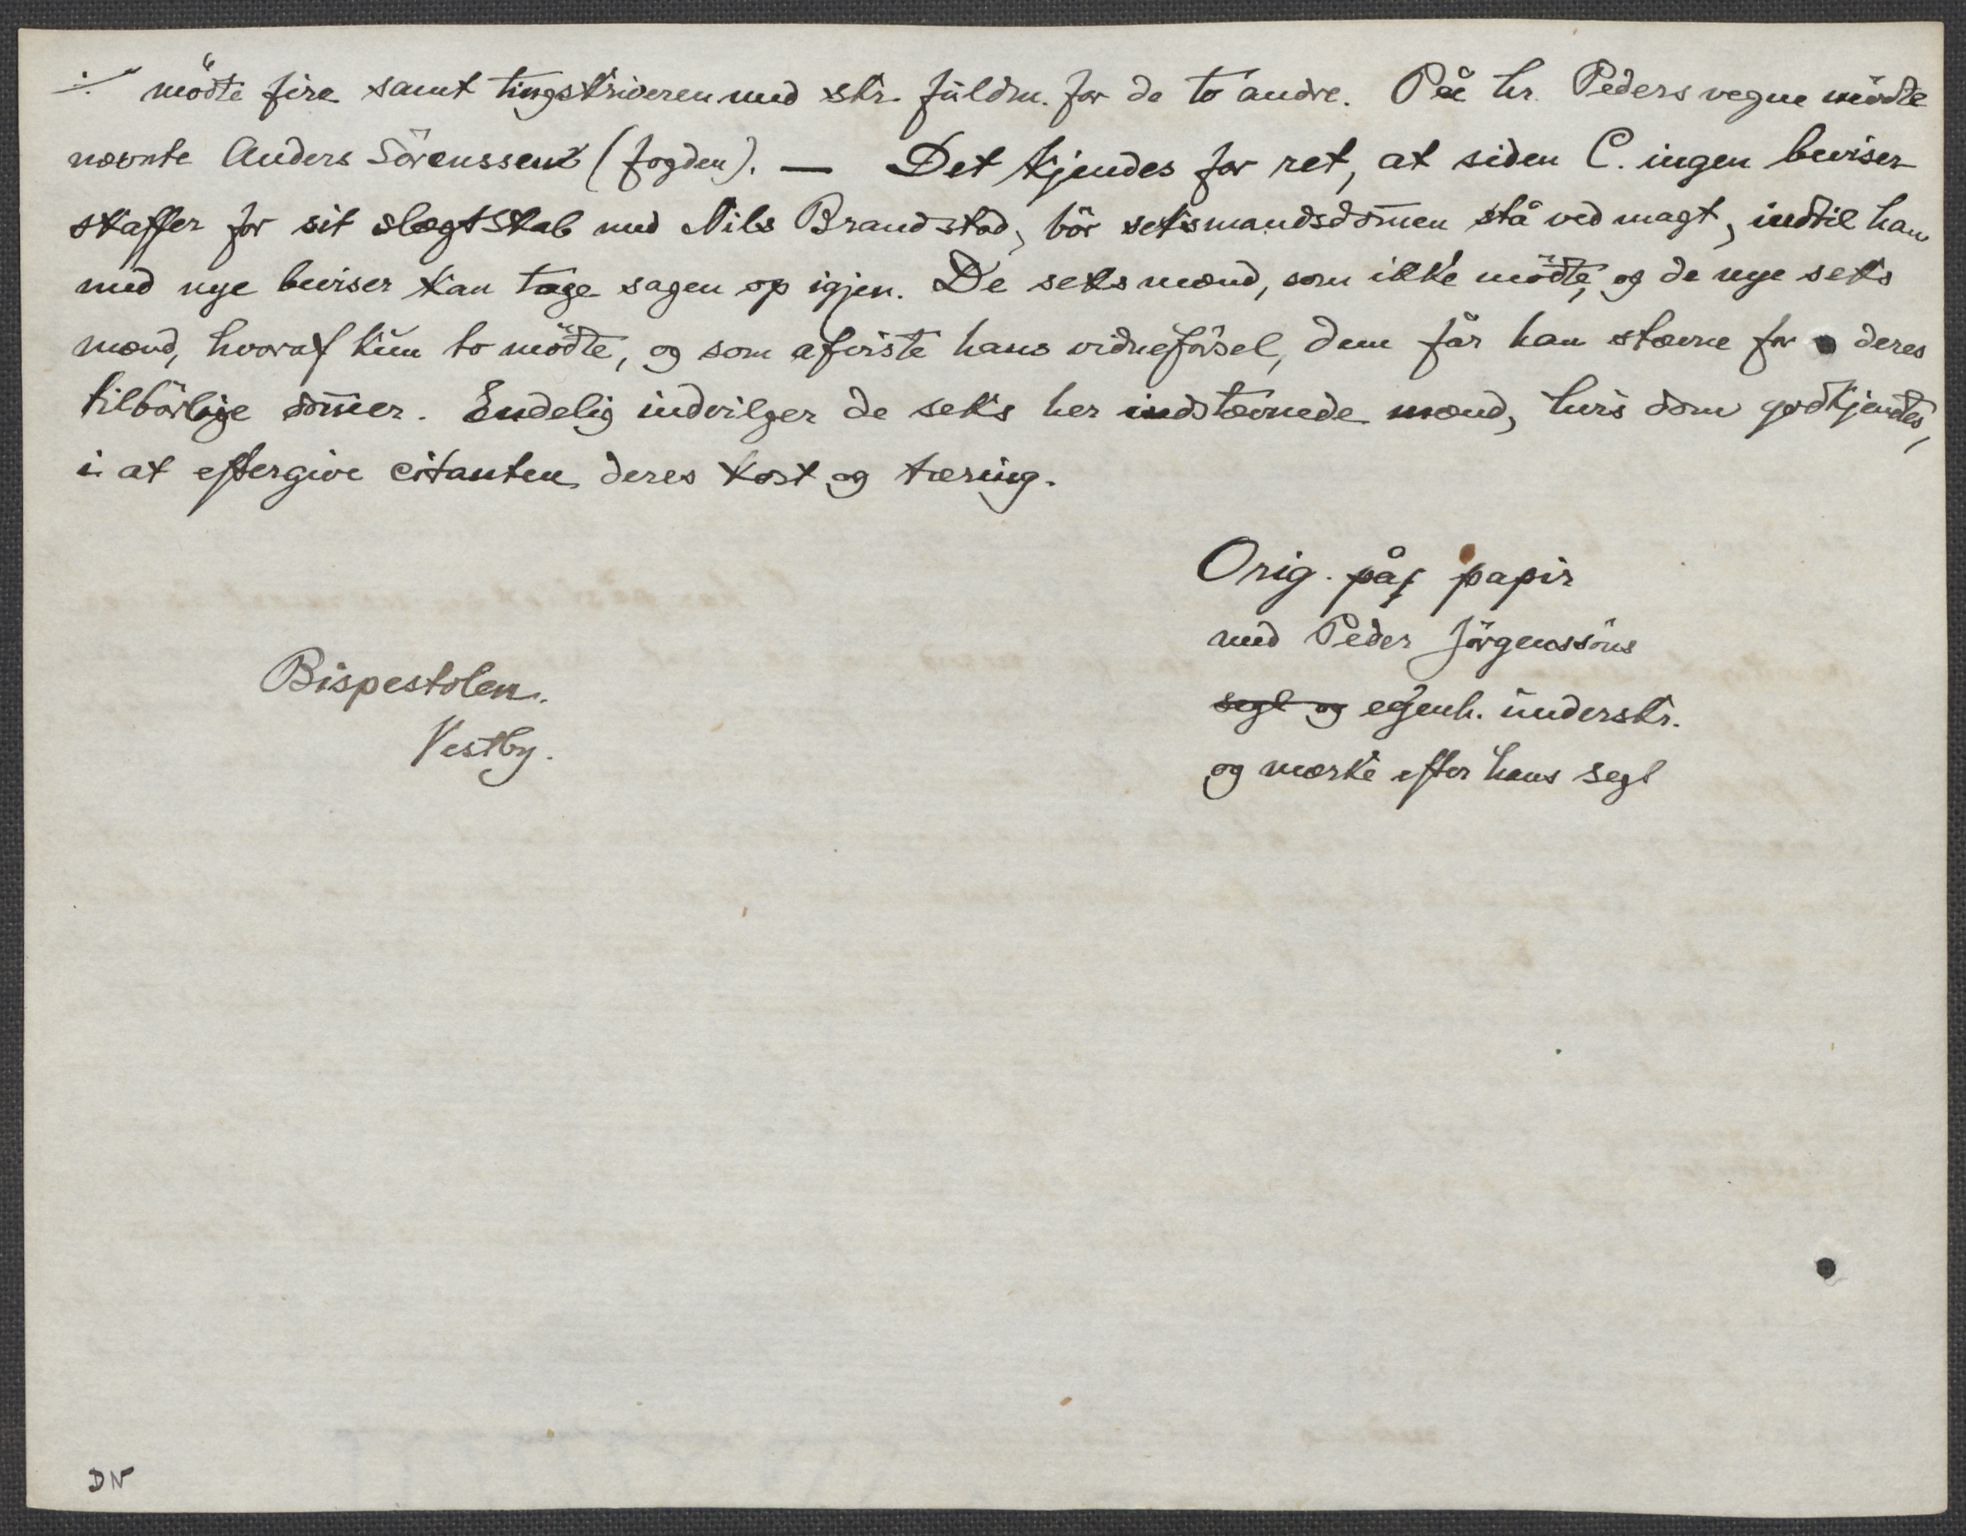 ÷ mödte fire samt tingskriveren med skr. fuldm. for de to andre. På hr. Peders vegne mödte
nævnte Anders Sörenssen (fogden). — Det kjendes for ret, at siden C. ingen beviser
skaffer for sit slægtskab med Nils Brandstad, bör seksmandsdom̄en stå ved magt, indtil han
med nye beviser kan tage sagen op igjen. De seks mænd, som ikke mödte, og de nye seks
mænd, hvoraf kun to mödte, og som afviste hans vidneförsel, dem får han stævne for deres
tilbörlige dom̄er. Endelig indvilger de seks her indstævnede mænd, hvis dom godkjendtes,
i at eftergive citanten deres kost og tæring.
Orig. på papir
med Peder Jörgenssöns
segl og egenh. underskr.
og mærke efter hans segl
Bispestolen.
Vestby.
DN